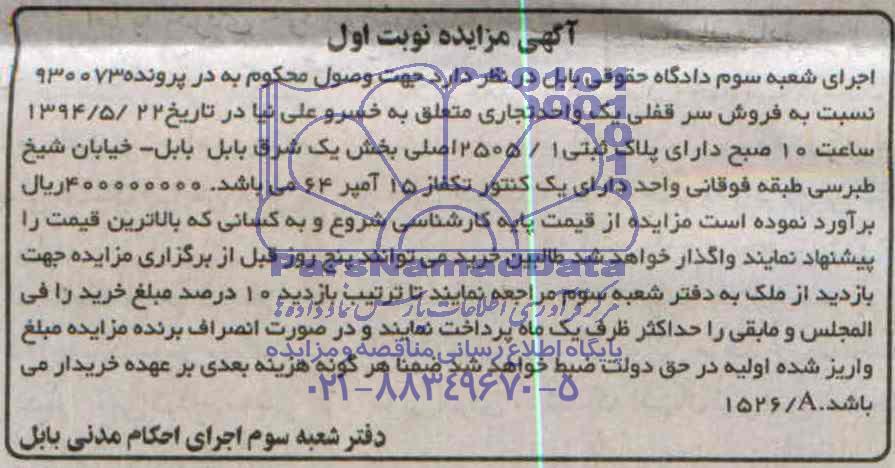 آگهی مزایده نوبت اول
اجرای شعبه سوم دادگاه حقوقی بابل درنظر دارد جهت وصول محکوم به در پرونده۹۳۰۰۷۳
نسبت به فروش سر قفلی یک واحدتجاری متعلق به خسرو علی نیا در تاریخ۲۲ /۱۳۹۴/۵
ساعت ۱۰ صبح دارای پلاک ثبتی۱ / ۲۵۰۵اصلی بخش یک شرق بابل بابل- خیابان شیخ
طبرسی طبقه فوقانی واحد دارای یک کنتور تکفاز ۱۵ آمپر ۶۴ می باشد. ۴۰۰۰۰۰۰۰۰ریال
برآورد نموده است مزایده از قیمت پایه کارشناسی شروع و به کسانی که بالاترین قیمت را
پیشنهاد نمایند واگذار خواهد شد طالبین خرید می توانند پنج روز قبل از برگزاری مزایده جهت
بازدید از ملک به دفتر شعبه سوم مراجعه نمایند تا ترتیب بازدید ۱۰ درصد مبلغ خرید را فی
المجلس و مابقی را حداکثر ظرف یک ماه پرداخت نمایند و در صورت انصراف برنده مزایده مبلغ
واریز شده اولیه در حق دولت ضبط خواهد شد ضمنا هر گونه هزینه بعدی بر عهده خریدار می
باشد.۱۵۲۶/A
دفتر شعبه سوم اجرای احکام مدنی بابل
ParsNamadData
مرکز فرآوری اطلاعات پارس نماد داده ها
پایگاه اطلاع رسانی مناقصه و مزایده
۰۲۱-۸۸۳۴۹۶۷۰-۵